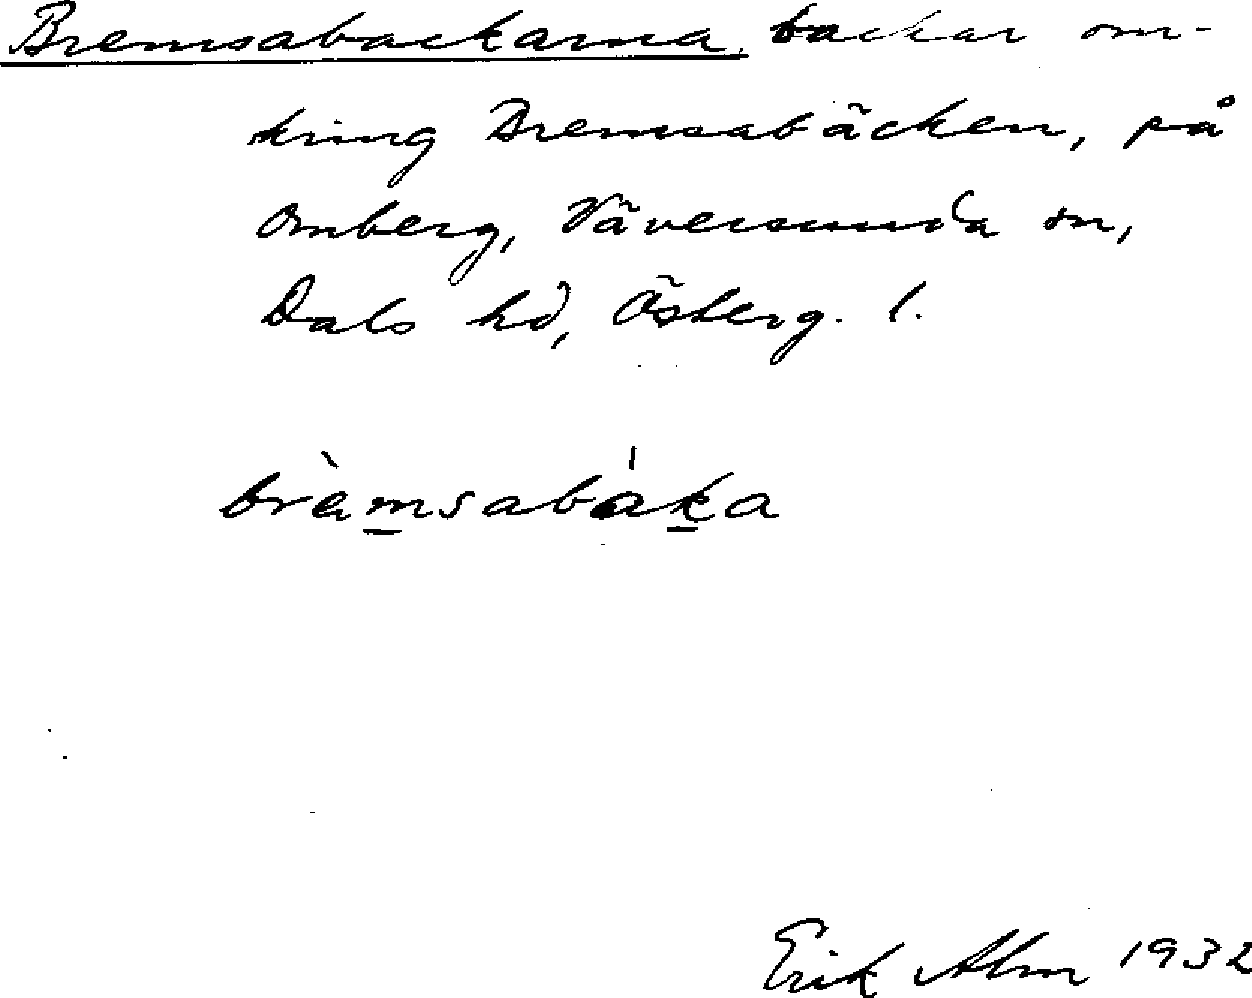 Bremsabackarna, backar om-
kring Bremsabäcken, på
Omberg, Väversunda sn,
Dals hd, Österg. l.
brämsabáka
Erik Alm 1932